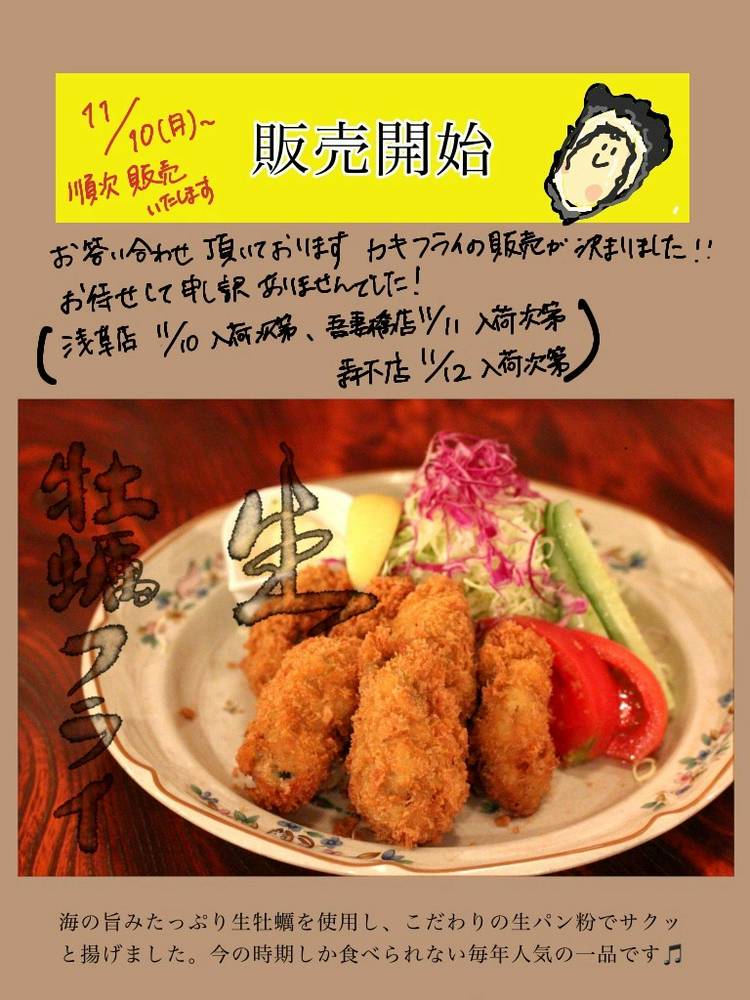 11/10(月)~
順次 販売
いたします
販売開始
お答い合わせ 頂いております カキフライの販売が 決まりました!!
お待せして申し訳ありませんでした!
(浅草店 11/10 入荷次第、吾妻橋店 11/11 入荷次第
11/12 入荷次第)
生
牡蠣フライ
海の旨みたっぷり生牡蠣を使用し、こだわりの生パン粉でサクッ
と揚げました。今の時期しか食べられない毎年人気の一品です🎵